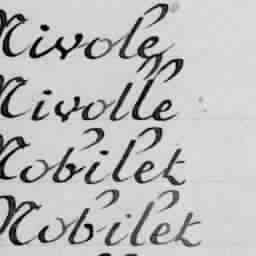 Nivole
Nivolle
Nobilet
Nobilet